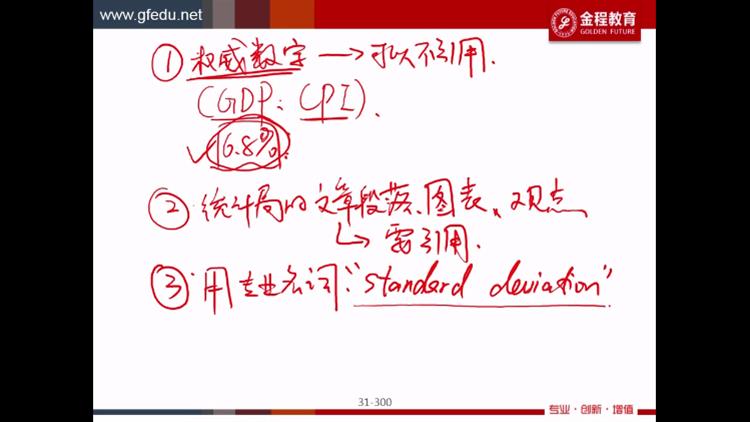 www.gfedu.net
金程教育
GOLDEN FUTURE
① 权威数字 → 可以不引用.
(GDP、CPI).
✓ 6.8%.
② 统计局的文章段落、图表、观点
↳ 需引用.
③ 用专业名词:"standard deviation"
31-300
专业·创新·增值